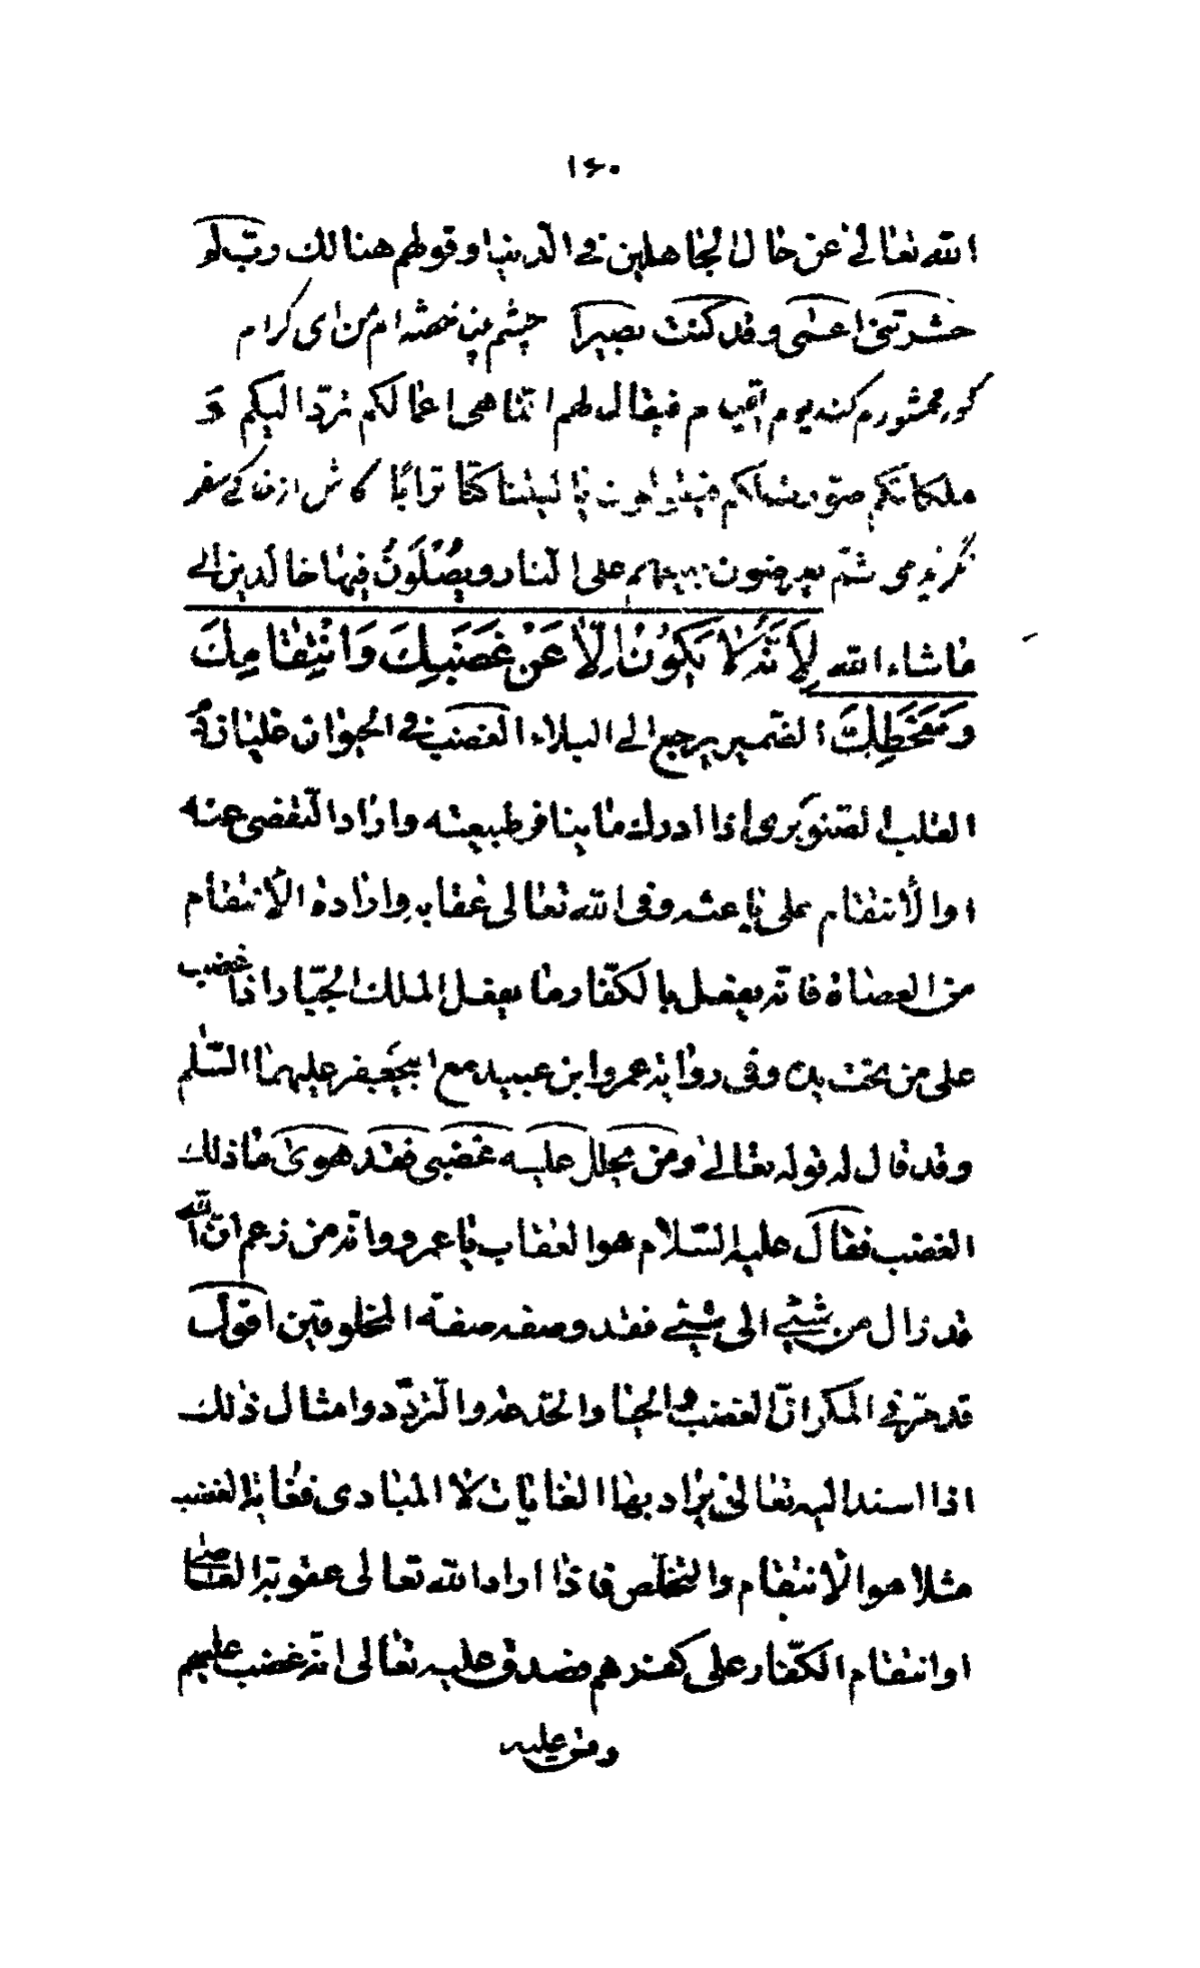 ١۶٠
الله تعالى عن حال الجاهلين فى الدنيا وقولهم هنالك ربّ لو
حشرتنى اعمى وقد كنت بصيرا چشم بينا خفته ام من اى كرام
كور محشورم كند يوم القيام فيقال لهم انّما هى اعمالكم تردّ اليكم وَ
ملكاتكم فيقولون يا ليتنا كنّا ترابًا كاش از خاكى سفر
نگزيدمى ثمّ يعرضون على النار ويصْلَوْنَ فيها خالدين الى
ماشاء الله لِاَنَّهُ لاٰ يَكُونُ اِلّاٰ عَنْ غَضَبِكَ وَانْتِقٰامِكَ
وَسَخَطِكَ الضمير يرجع الى البلاء الغضب فى الحيوان غليان دم
القلب الصنوبرى اذا ادرك ما ينافر طبيعته واراد التفصى عنه
اوالأنتقام على باعثه وفى الله تعالى عقابه وارادة الأنتقام
من العصاة فانّه يفعل بالكفّار ما يفعل الملك الجبّار اذا غضب
على من تحت يده وفى رواية عمروا بن عبيد مع ابيجعفر عليهما السّلم
وقد قال له قوله تعالى ومن يحلل عليه غضبى فقد هوى ما ذلك
الغضب فقال عليه السّلام هوالعقاب يا عمرو وانّه من زعم انّ الله
قد زال من شيئ الى شيئ فقد وصفه صفة المخلوقين اقول
قد مرّ فى المكر انّ الغضب والحيا والخدعة والتردّد وامثال ذلك
اذا اسند اليه تعالى يراد بها الغايات لا المبادى فغاية الغضب
مثلا هوالأنتقام والتخلّص فاذا اراد الله تعالى عقوبة العاصى
اوانتقام الكفّار على كفرهم صدق عليه تعالى انّه غضب عليهم
ومن عليه